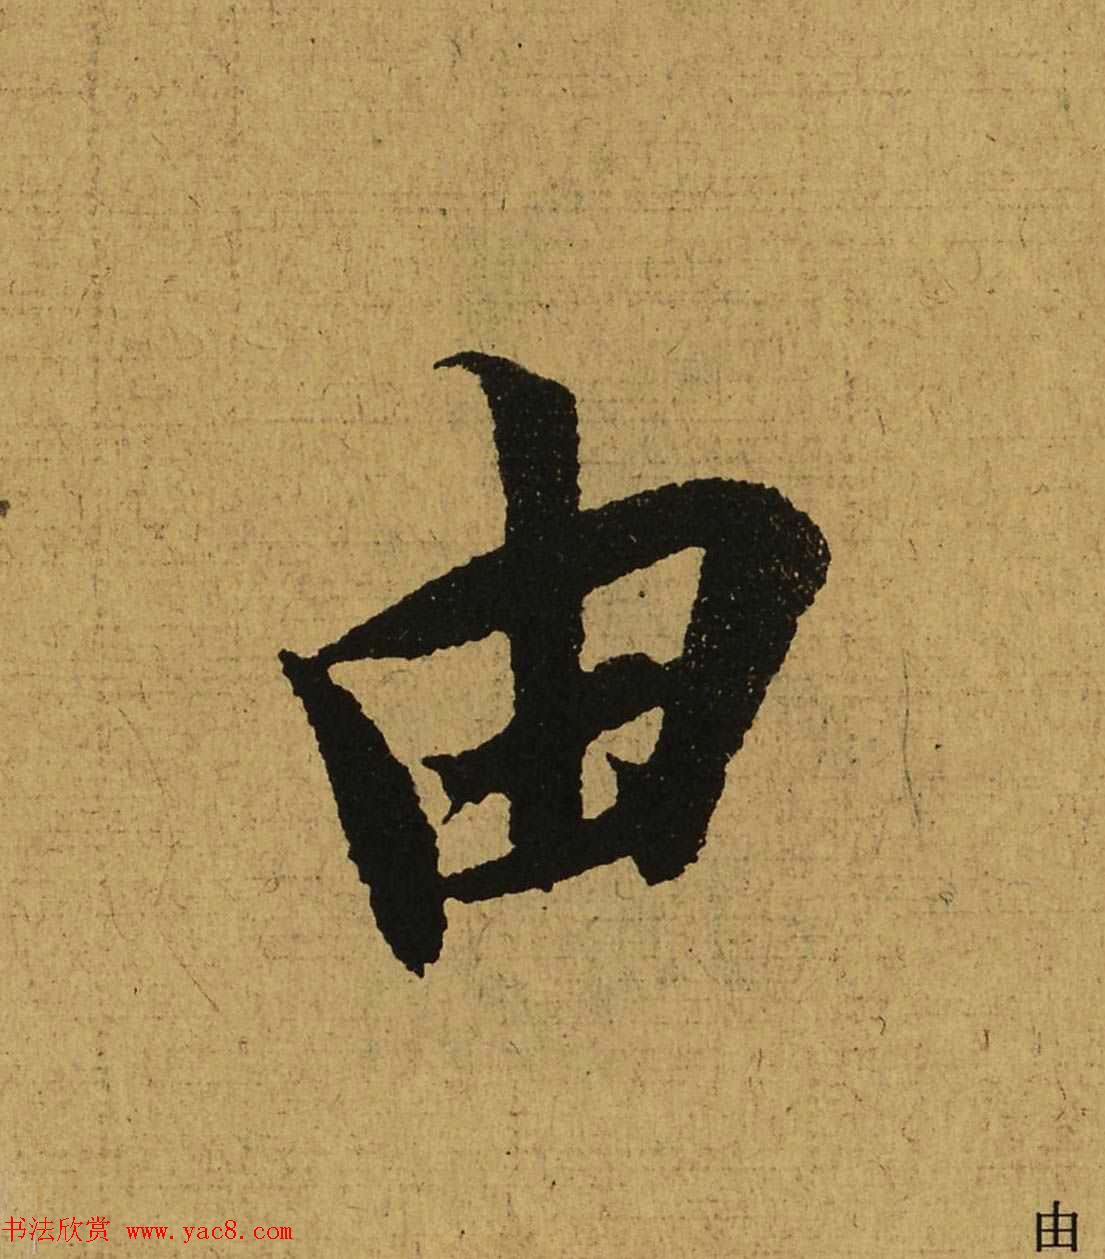 由
书法欣赏 www.yac8.com
由